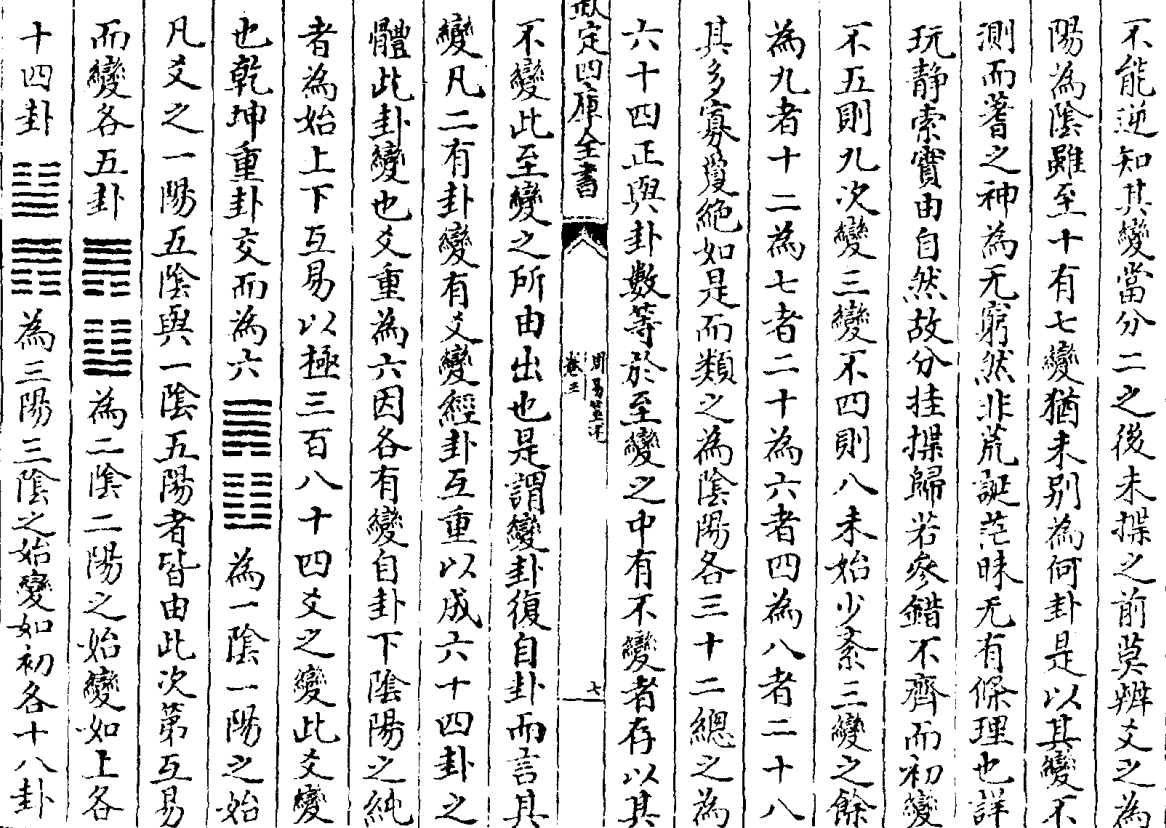 不能逆知其變當分二之後未揲之前莫辨爻之為
陽為陰雖至十有七變猶未别為何卦是以其變不
測而蓍之神為无窮然非荒誕茫昧无有條理也詳
玩静索實由自然故分挂揲歸若參錯不齊而初變
不五則九次變三變不四則八未始少紊三變之餘
為九者十二為七者二十為六者四為八者二十八
其多寡夐絶如是而類之為陰陽各三十二總之為
六十四正與卦數等於至變之中有不變者存以其
欽定四庫全書
周易筮述
卷三
七
不變此至變之所由出也是謂變卦復自卦而言其
變凡二有卦變有爻變經卦互重以成六十四卦之
體此卦變也爻重為六因各有變自卦下陰陽之純
者為始上下互易以極三百八十四爻之變此爻變
也乾坤重卦交而為六䷫䷗為一陰一陽之始
凡爻之一陽五陰與一陰五陽者皆由此次第互易
而變各五卦䷠䷒為二陰二陽之始變如上各
十四卦䷊䷋為三陽三陰之始變如初各十八卦